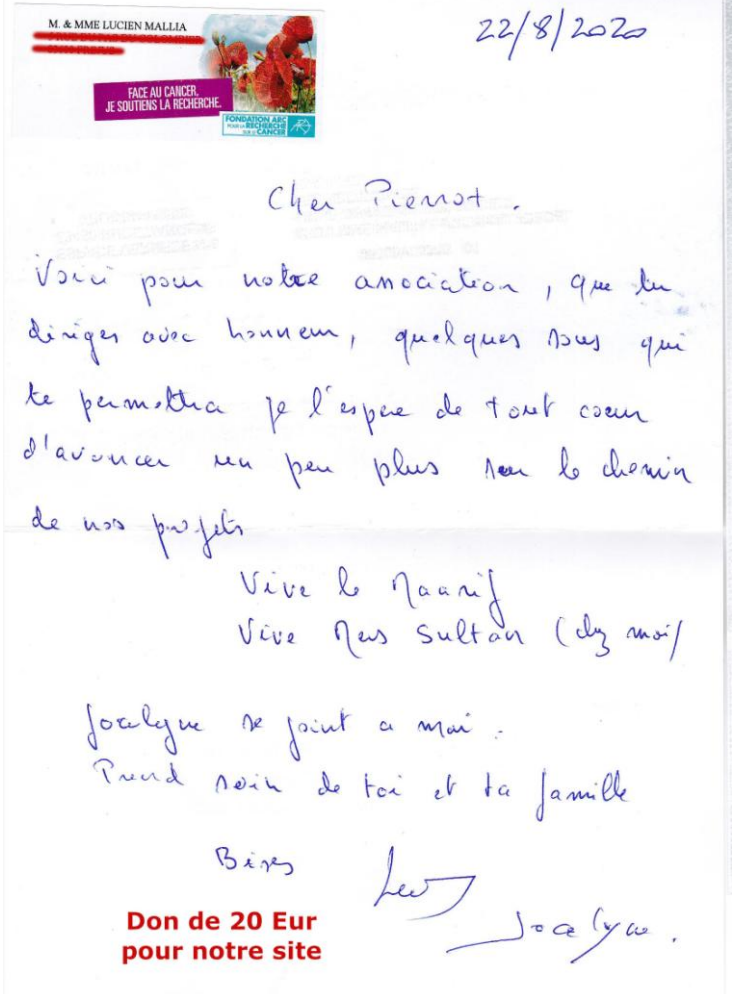 M. & MME LUCIEN MALLIA
FACE AU CANCER,
JE SOUTIENS LA RECHERCHE.
FONDATION ARC
POUR LA RECHERCHE
SUR LE CANCER
22/8/2020
Cher Pierrot.
Voici pour notre association, que tu
diriges avec honneur, quelques sous qui
te permettra je l'espere de tout coeur
d'avancer un peu plus sur le chemin
de nos projets
Vive le Maarif
Vive Mers Sultan (chez moi)
Jocelyne se joint a moi.
Prend soin de toi et ta famille
Bises
Jocelyne.
Don de 20 Eur
pour notre site